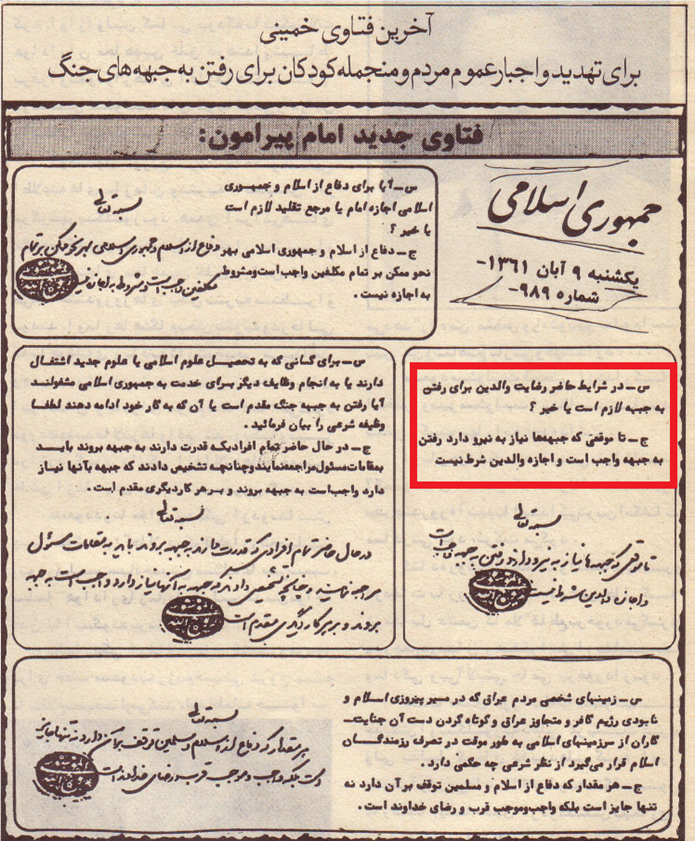 آخرین فتاوی خمینی
برای تهدید و اجبار عموم مردم و منجمله کودکان برای رفتن به جبهه‌های جنگ
فتاوی جدید امام پیرامون:
جمهوری اسلامی
یکشنبه ۹ آبان ۱۳۶۱-
شماره ۹۸۹-
س ــ آیا برای دفاع از اسلام و جمهوری
اسلامی اجازه امام یا مرجع تقلید لازم است
یا خیر ؟
ج ــ دفاع از اسلام و جمهوری اسلامی بهر
نحو ممکن بر تمام مکلفین واجب است و مشروط
به اجازه نیست .
بسمه تعالی
دفاع از اسلام و جمهوری اسلامی بهر نحو ممکن بر تمام
مکلفین واجب است و مشروط به اجازه نیست
س ــ در شرایط حاضر رضایت والدین برای رفتن
به جبهه لازم است یا خیر ؟
ج ــ تا موقعی که جبهه‌ها نیاز به نیرو دارد رفتن
به جبهه واجب است و اجازه والدین شرط نیست .
بسمه تعالی
تا موقعی که جبهه‌ها نیاز به نیرو دارد رفتن به جبهه واجب است
و اجازه والدین شرط نیست
س ــ برای کسانی که به تحصیل علوم اسلامی یا علوم جدید اشتغال
دارند یا به انجام وظایف دیگر برای خدمت به جمهوری اسلامی مشغولند
آیا رفتن به جبهه جنگ مقدم است یا آن که به کار خود ادامه دهند لطفا
وظیفه شرعی را بیان فرمائید .
ج ــ در حال حاضر تمام افرادیکه قدرت دارند به جبهه بروند بایــد
بمقامات مسئول مراجعه نمایند و چنانچه تشخیص دادند که جبهه بآنها نیاز
دارد واجب است به جبهه بروند و بر هر کار دیگری مقدم است .
بسمه تعالی
در حال حاضر تمام افرادی که قدرت دارند به جبهه بروند باید به مقامات مسئول
مراجعه نمایند و چنانچه تشخیص دادند که جبهه به آنها نیاز دارد واجب است به جبهه
بروند و بر هر کار دیگری مقدم است
س ــ زمینهای شخصی مردم عراق که در مسیر پیروزی اسلام و
نابودی رژیم کافر و متجاوز عراق و کوتاه کردن دست آن جنایت‌ـ
کاران از سرزمینهای اسلامی به طور موقت در تصرف رزمندگــان
اسلام قرار می‌گیرد از نظر شرعی چه حکمی دارد .
ج ــ هر مقدار که دفاع از اسلام و مسلمین توقف بر آن دارد نه
تنها جایز است بلکه واجب و موجب قرب و رضای خداوند است .
بسمه تعالی
هر مقدار که دفاع از اسلام و مسلمین توقف بر آن دارد نه تنها جایز
است بلکه واجب و موجب قرب و رضای خداوند است